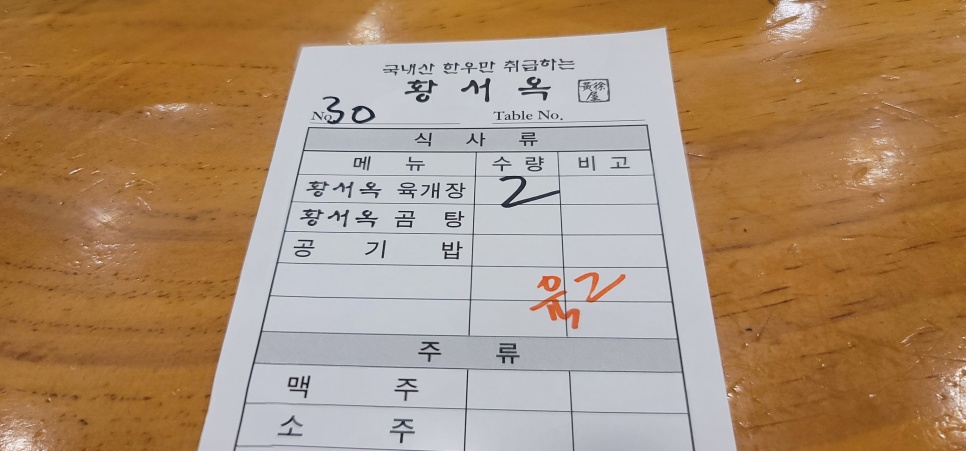 국내산 한우만 취급하는
황서옥 黃徐屋
No. 30 Table No.
식 사 류
메 뉴 수 량 비 고
황서옥 육개장 2
황서옥 곰 탕
공 기 밥
육2
주 류
맥 주
소 주